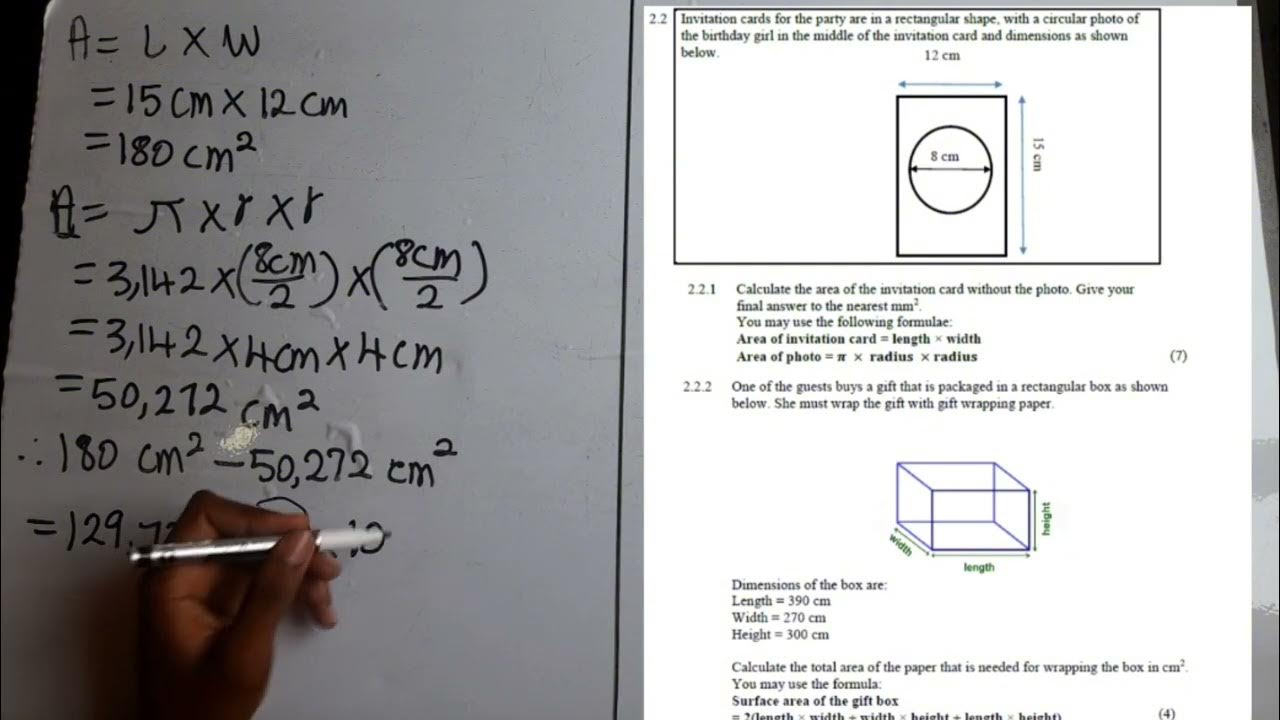 A = L X W
= 15 cm X 12 cm
= 180 cm²
A = π x r x r
= 3,142 x (8cm/2) x (8cm/2)
= 3,142 x 4cm x 4cm
= 50,272 cm²
∴ 180 cm² - 50,272 cm²
= 129,7
2.2 Invitation cards for the party are in a rectangular shape, with a circular photo of
the birthday girl in the middle of the invitation card and dimensions as shown
below.
12 cm
8 cm
15 cm
2.2.1 Calculate the area of the invitation card without the photo. Give your
final answer to the nearest mm².
You may use the following formulae:
Area of invitation card = length × width
Area of photo = π × radius × radius (7)
2.2.2 One of the guests buys a gift that is packaged in a rectangular box as shown
below. She must wrap the gift with gift wrapping paper.
height
width
length
Dimensions of the box are:
Length = 390 cm
Width = 270 cm
Height = 300 cm
Calculate the total area of the paper that is needed for wrapping the box in cm².
You may use the formula:
Surface area of the gift box
= 2(length × width + width × height + length × height) (4)